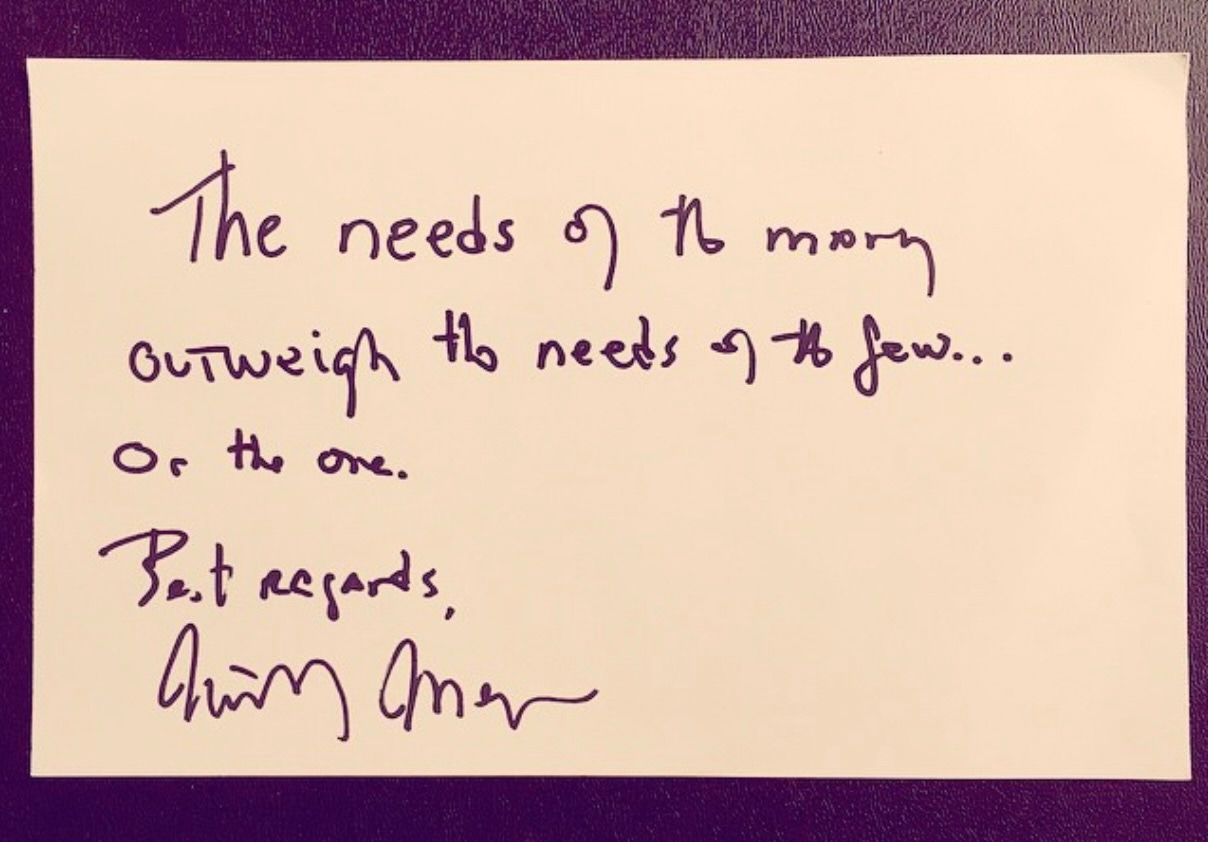 The needs of the many
outweigh the needs of the few...
Or the one.
Best regards,